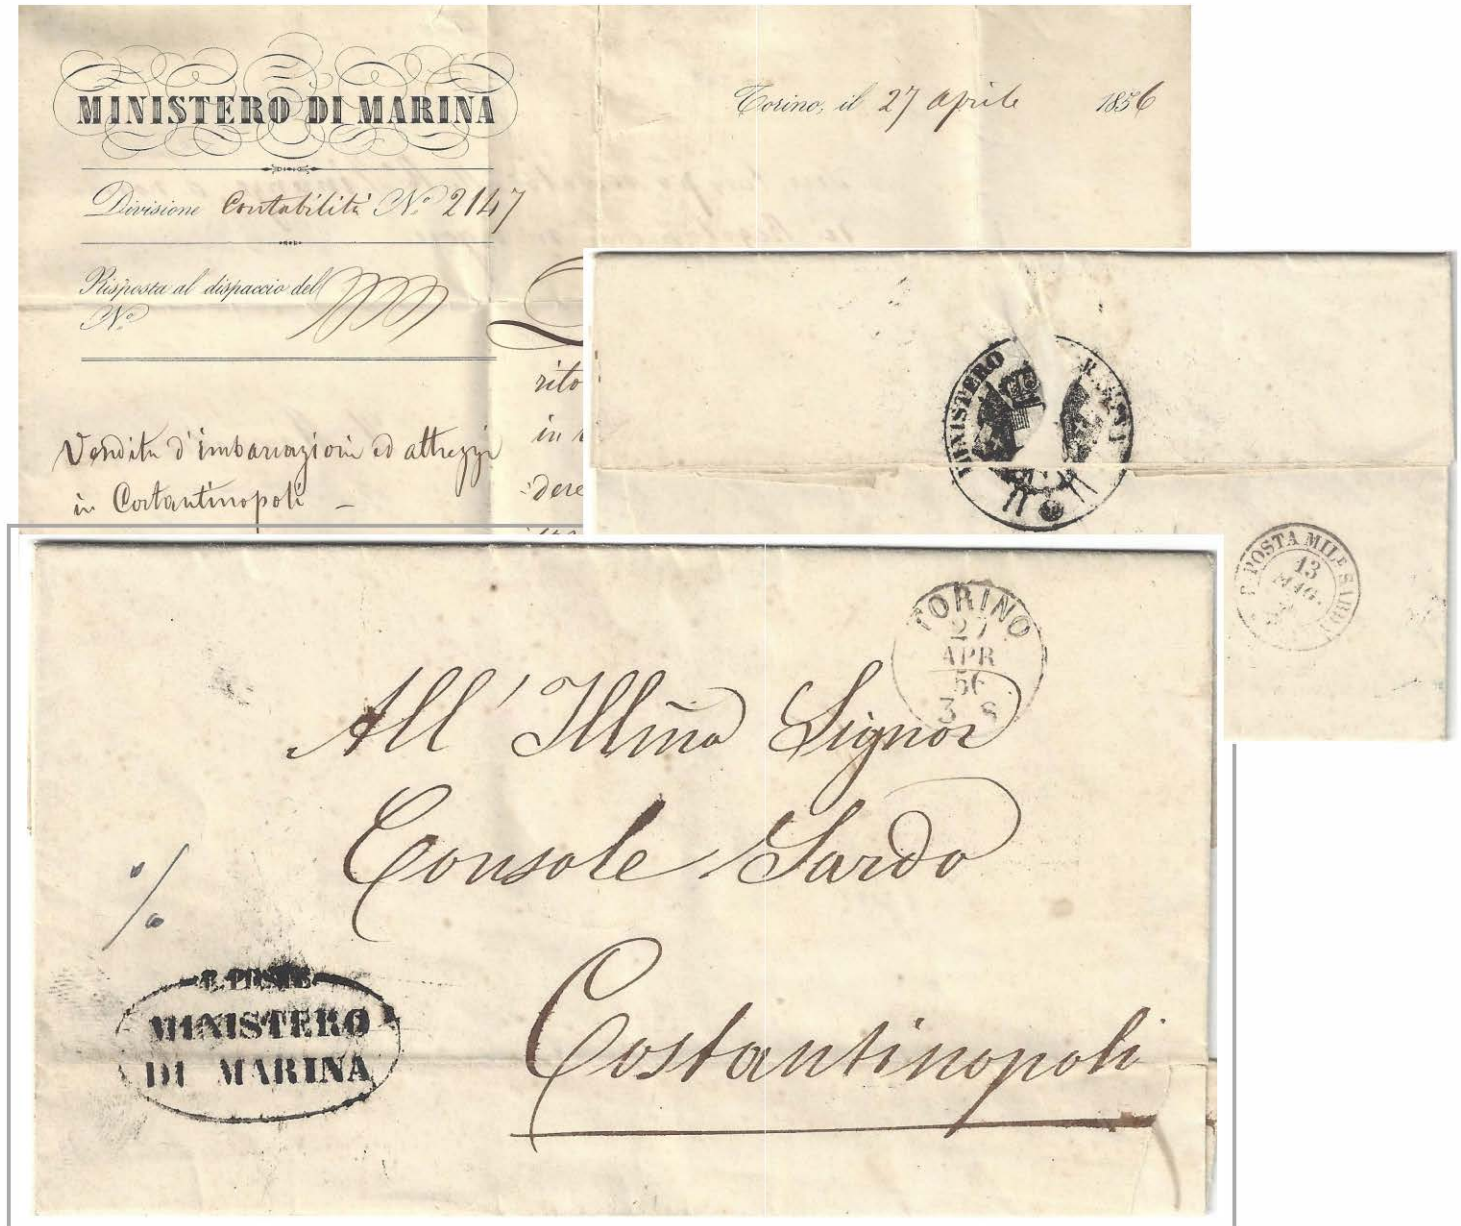 MINISTERO DI MARINA
Torino, il 27 aprile 1856
Divisione Contabilità N.º 2147
Risposta al dispaccio del
N.º
Vendita d'imbarcazioni ed attrezzi
in Costantinopoli –
rito
in
dere
MINISTERO
R. POSTA MILE SARDA
13
MAG.
TORINO
27
APR
56
3 S
All' Illmo Signor
Console Sardo
Costantinopoli
R. POSTE
MINISTERO
DI MARINA